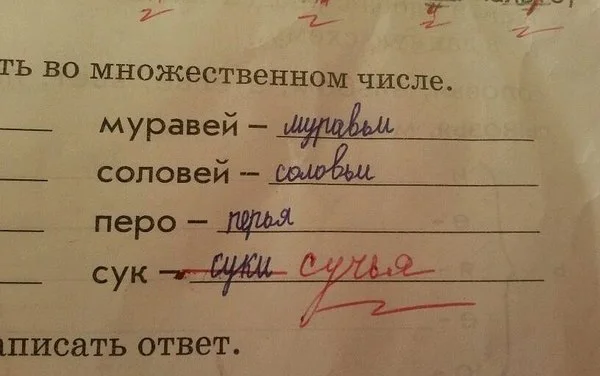 ть во множественном числе.
муравей – муравьи
соловей – соловьи
перо – перья
сук – суки сучья
аписать ответ.